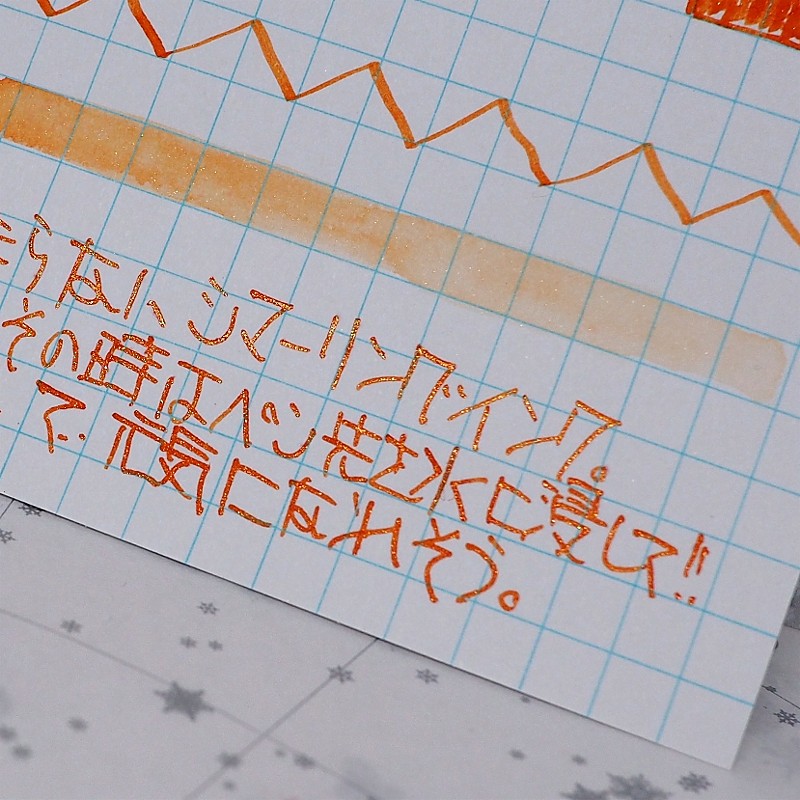 まらない、シマーリングインク。
その時はペン先を水に浸して!!
で元気になれそう。